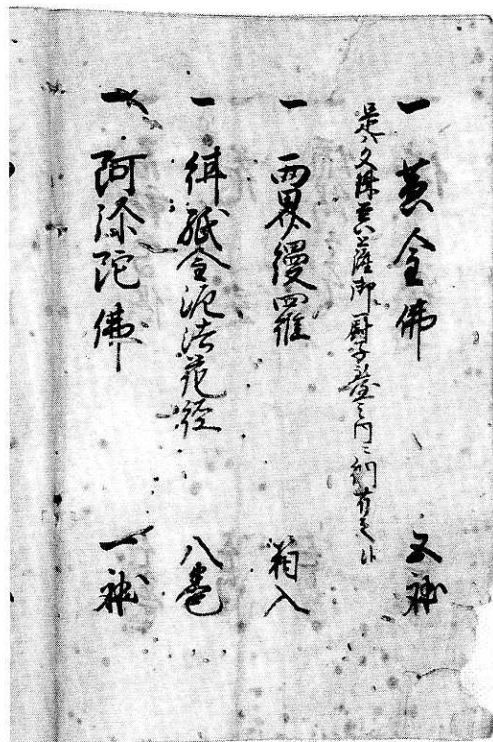 一 黄金佛 五躰
是ハ文殊菩薩御厨子臺之内ニ納有之候
一 両界縵羅 箱入
一 紺紙金泥法花経 八巻
一 阿弥陀佛 一躰